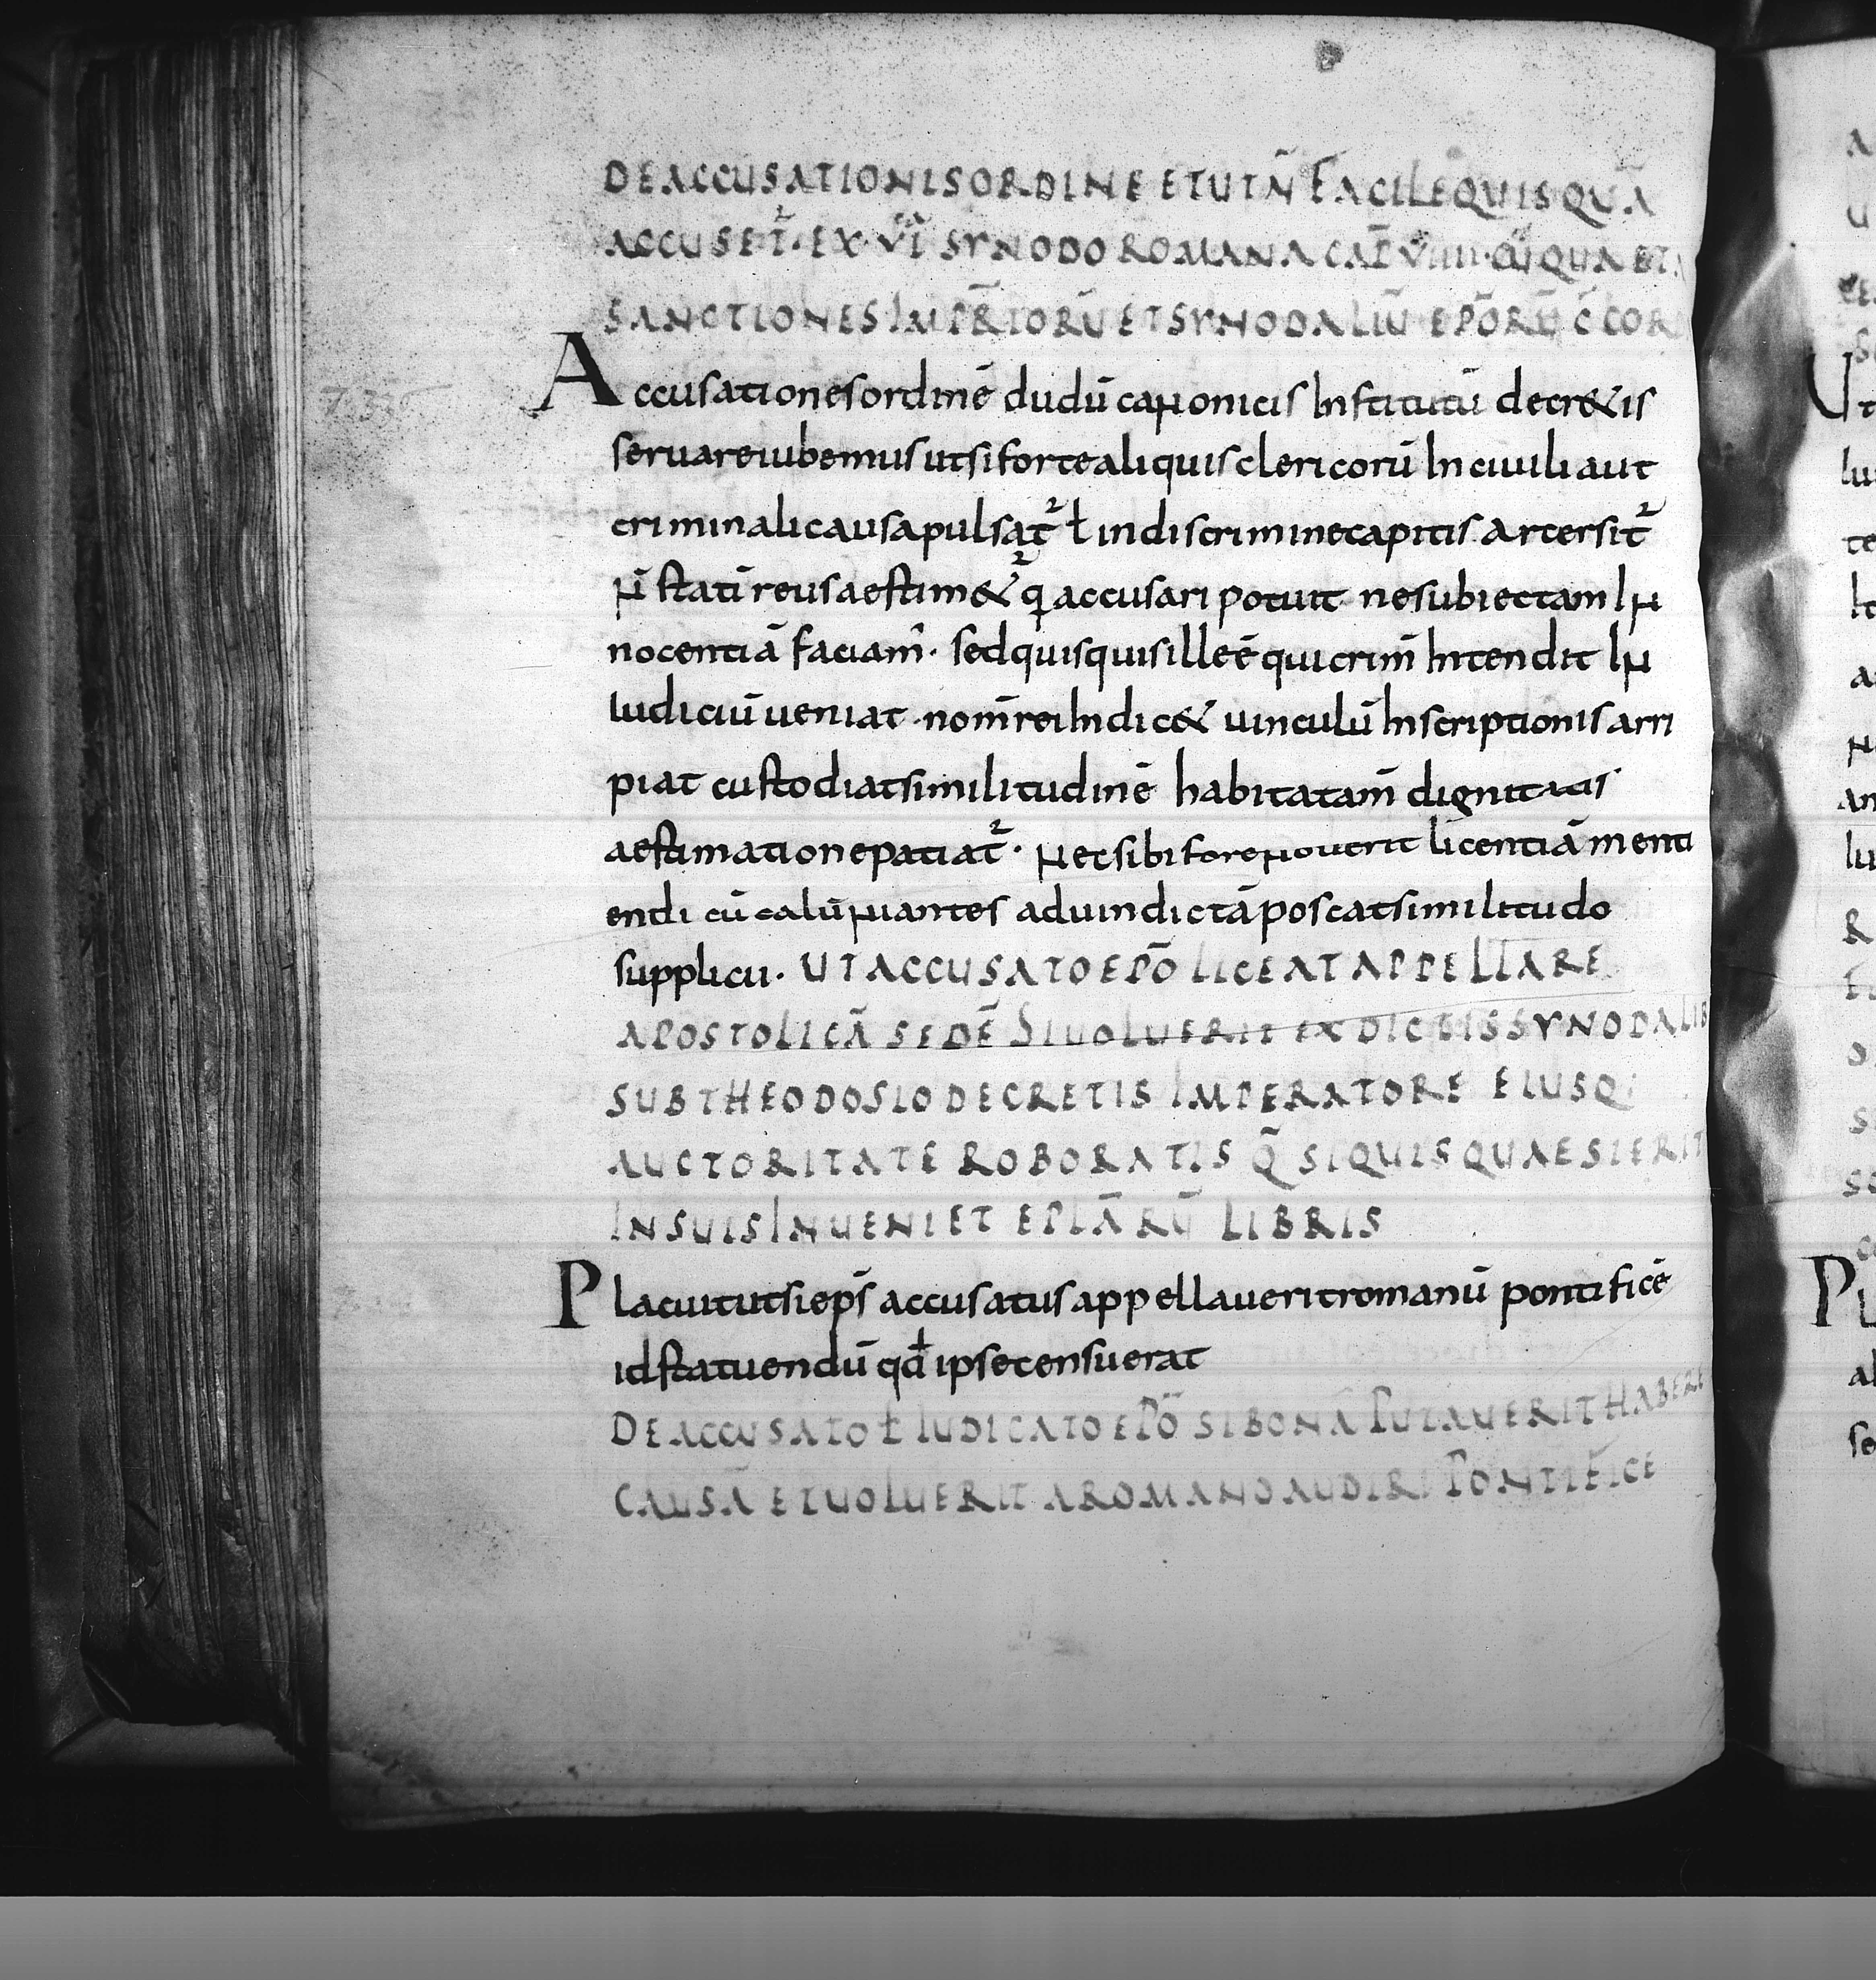 DE ACCUSATIONIS ORDINE ET UT N̄ FACILE QUISQUĀ
ACCUSET᷑. EX VI SYNODO ROMANA CAP̄ VIIII.
SANCTIONES IMPR̄TORŪ ET SYNODALIŪ EPŌRŪ C̄COR
Accusationes ordinē dudū canonicis Institutū decr&is
seruare iubemus ut si forte aliquis clericorū In ciuili aut
criminali causa pulsat᷑ ł in discrimine capitis arcersit᷑
n̄ statī reus aestim&᷑ q accusari potuit ne subiectam In
nocentiā faciam̄. sed quisquis ille ē qui crim̄ Intendit In
Iudiciū ueniat. nom̄ rei Indic& uinculū Inscriptionis arri
piat custodiat similitudinē habita tam̄ dignitatis
aestimatione patiat᷑. Nec sibi fore nouerit licentiā menti
endi cū calūniantes ad uindictā poscat similitudo
supplicii. UT ACCUSATO EPŌ LICEAT APPELLARE
APOSTOLICĀ SEDĒ SI UOLUERIT EX DICTIS SYNODALIB
SUB THEODOSIO DECRETIS IMPERATORE EIUSQ;
AUCTORITATE ROBORATIS Q̄ SI QUIS QUAESIERIT
IN SUIS INUENIET EPLĀRŪ LIBRIS
Placuit ut si ep̄s accusatus appellauerit romanū pontificē
id statuendū qđ ipse censuerat
DE ACCUSATO Ł IUDICATO EPŌ SI BONĀ PUTAUERIT HABERE
CAUSĀ ET UOLUERIT A ROMANO AUDIRI PONTIFICE